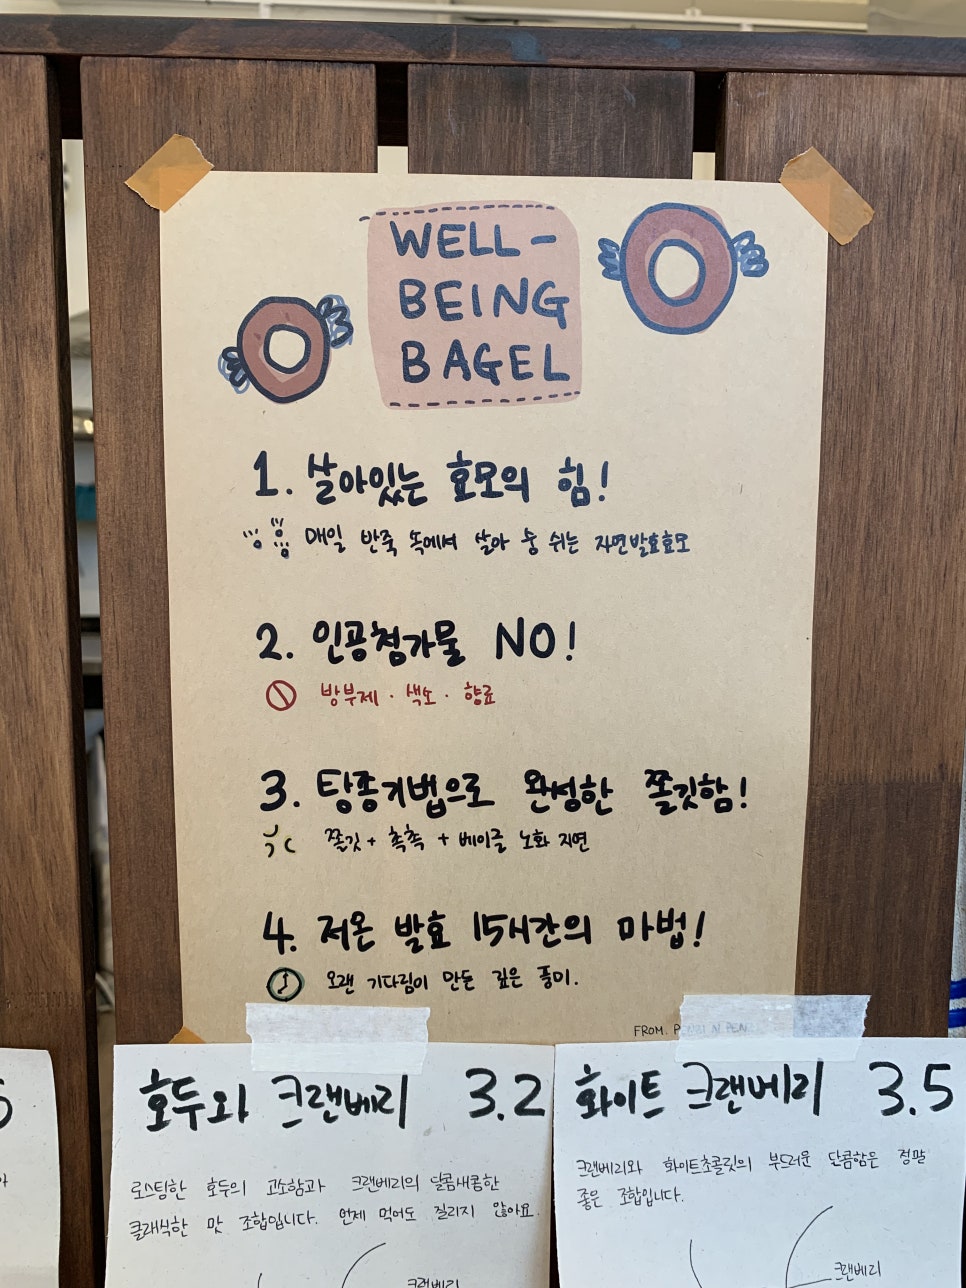 WELL-
BEING
BAGEL
1. 살아있는 효모의 힘!
매일 반죽 속에서 살아 숨 쉬는 자연발효효모
2. 인공첨가물 NO!
방부제 · 색소 · 향료
3. 탕종기법으로 완성한 쫄깃함!
쫄깃 + 촉촉 + 베이글 노화 지연
4. 저온 발효 15시간의 마법!
오랜 기다림이 만든 깊은 풍미.
FROM.
호두와 크랜베리 3.2
로스팅한 호두의 고소함과 크랜베리의 달콤새콤한
클래식한 맛 조합입니다. 언제 먹어도 질리지 않아요.
크랜베리
화이트 크랜베리 3.5
크랜베리와 화이트초콜릿의 부드러운 단콤함은 정말
좋은 조합입니다.
크랜베리